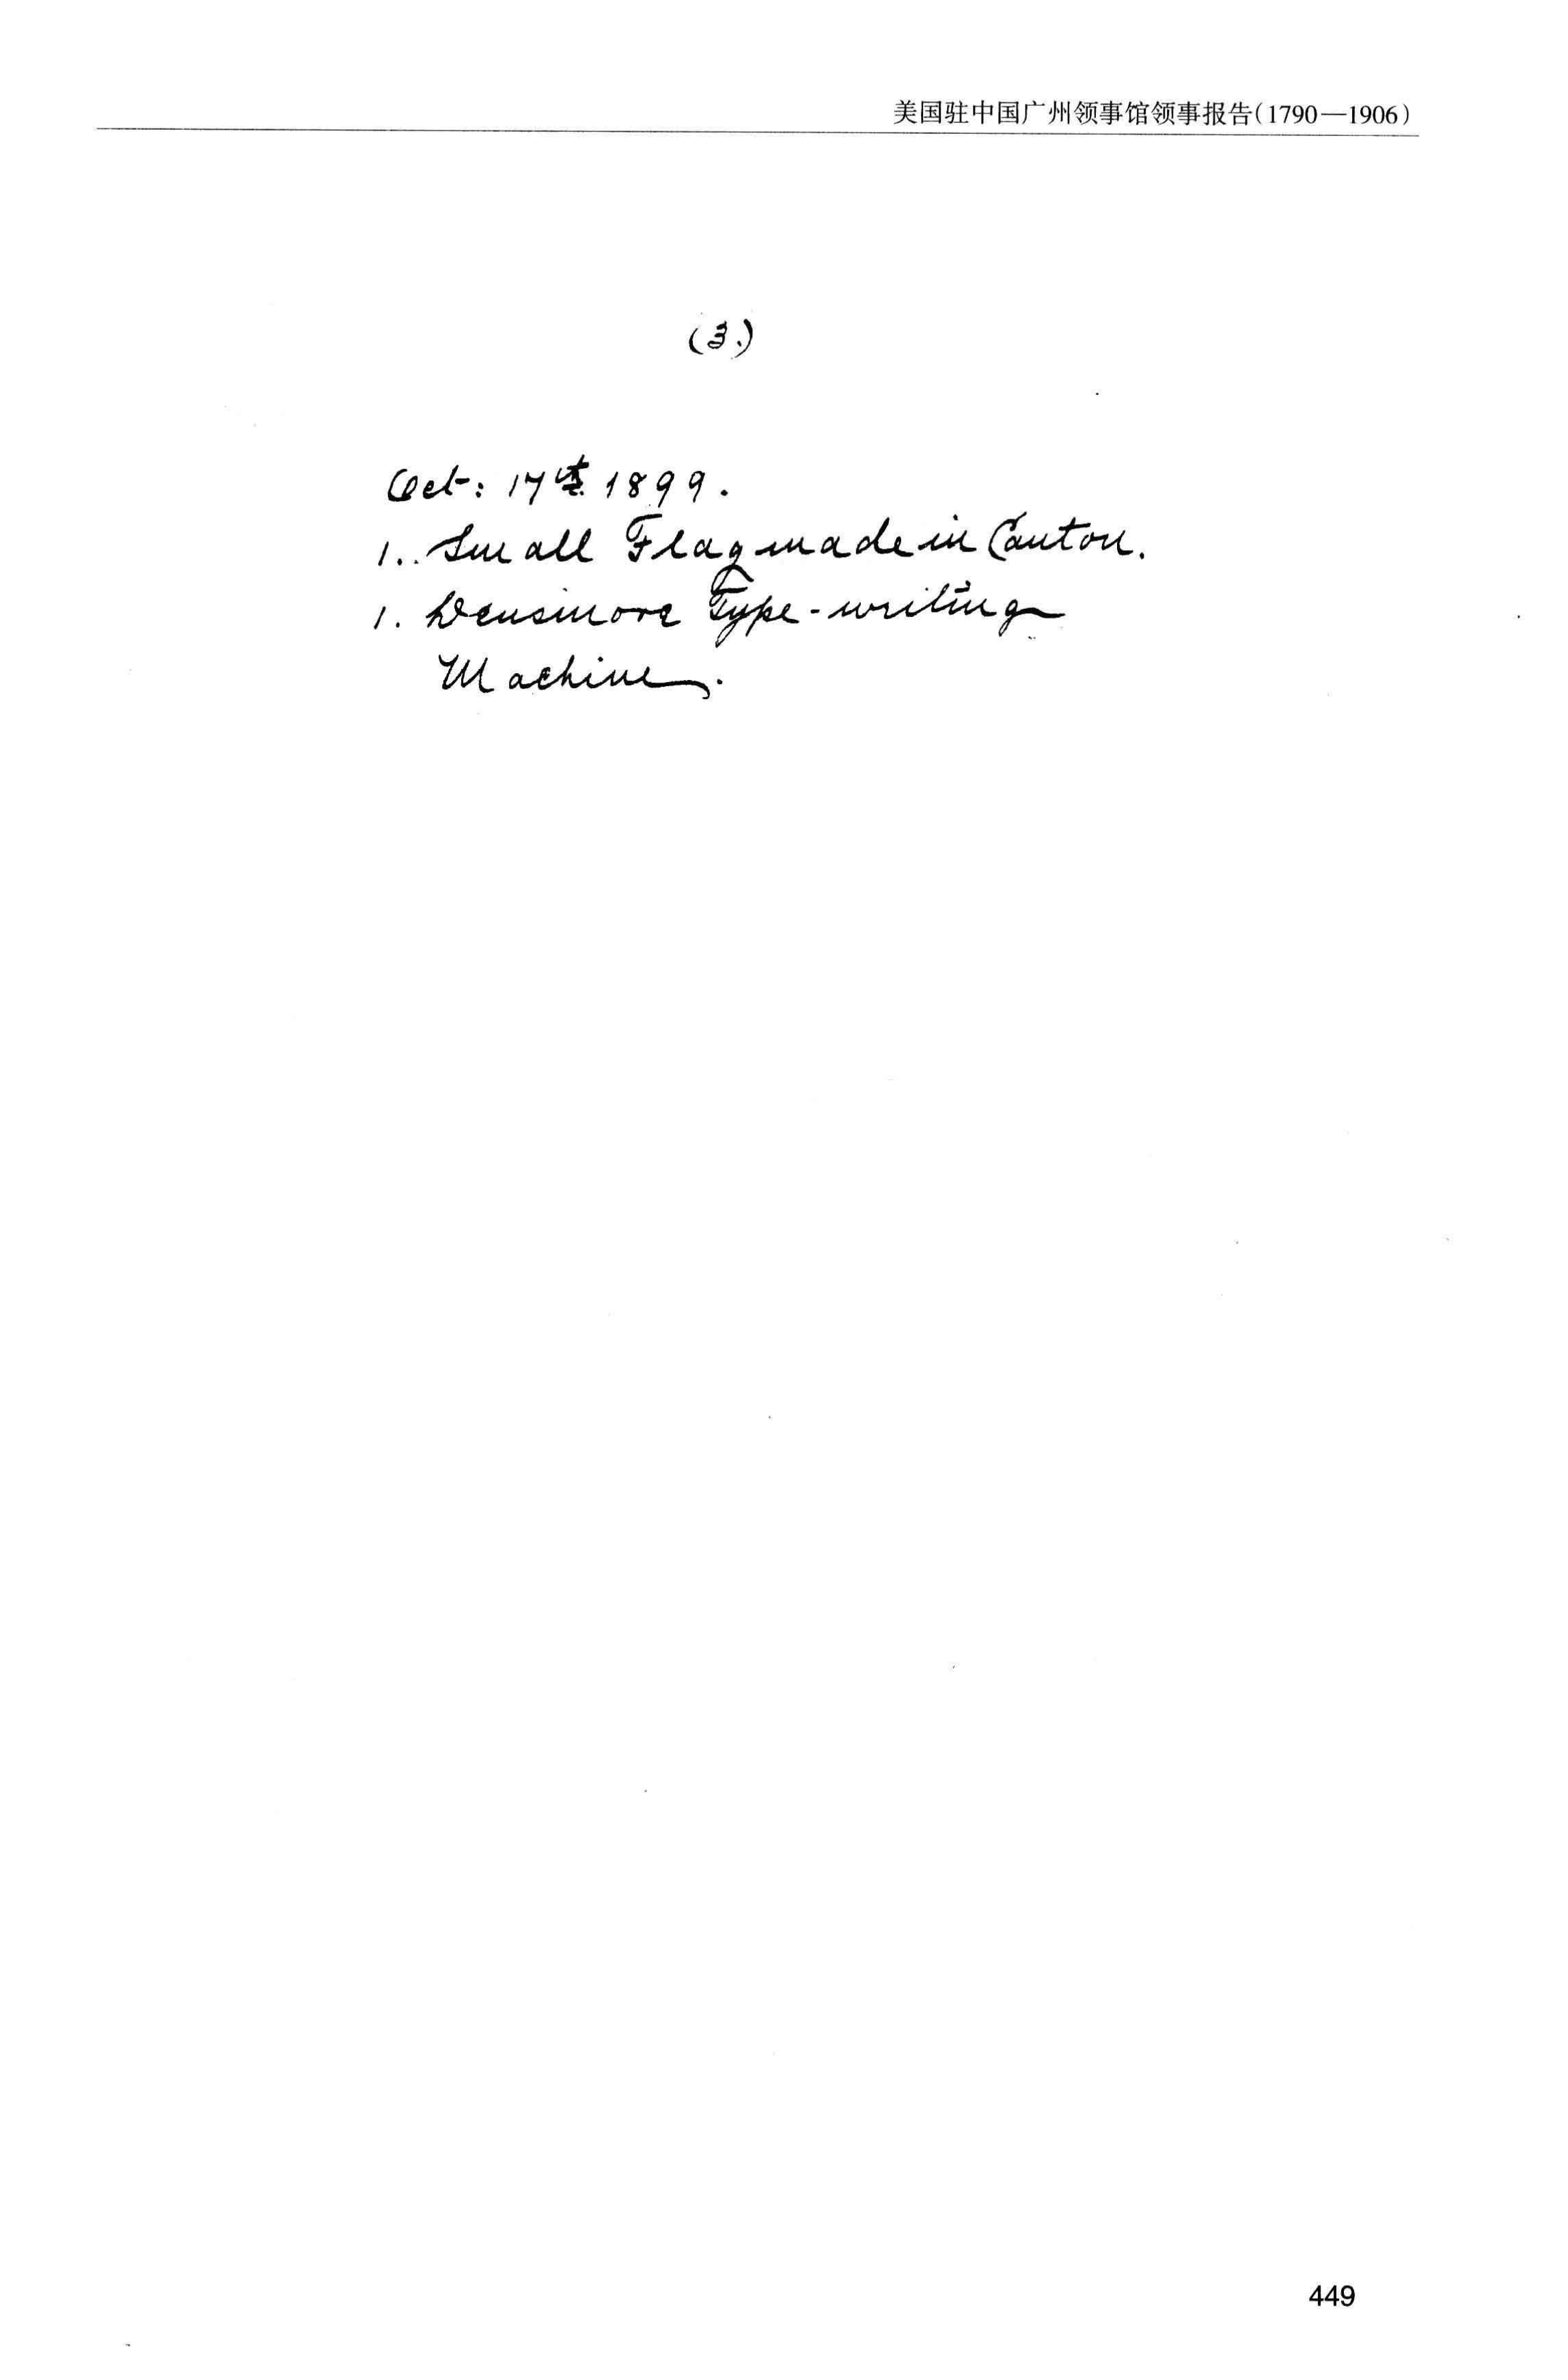 美国驻中国广州领事馆领事报告(1790—1906)
(3.)
Oct: 17th 1899.
1.. Small Flag made in Canton.
1. Densmore Type-writing
Machine.
449